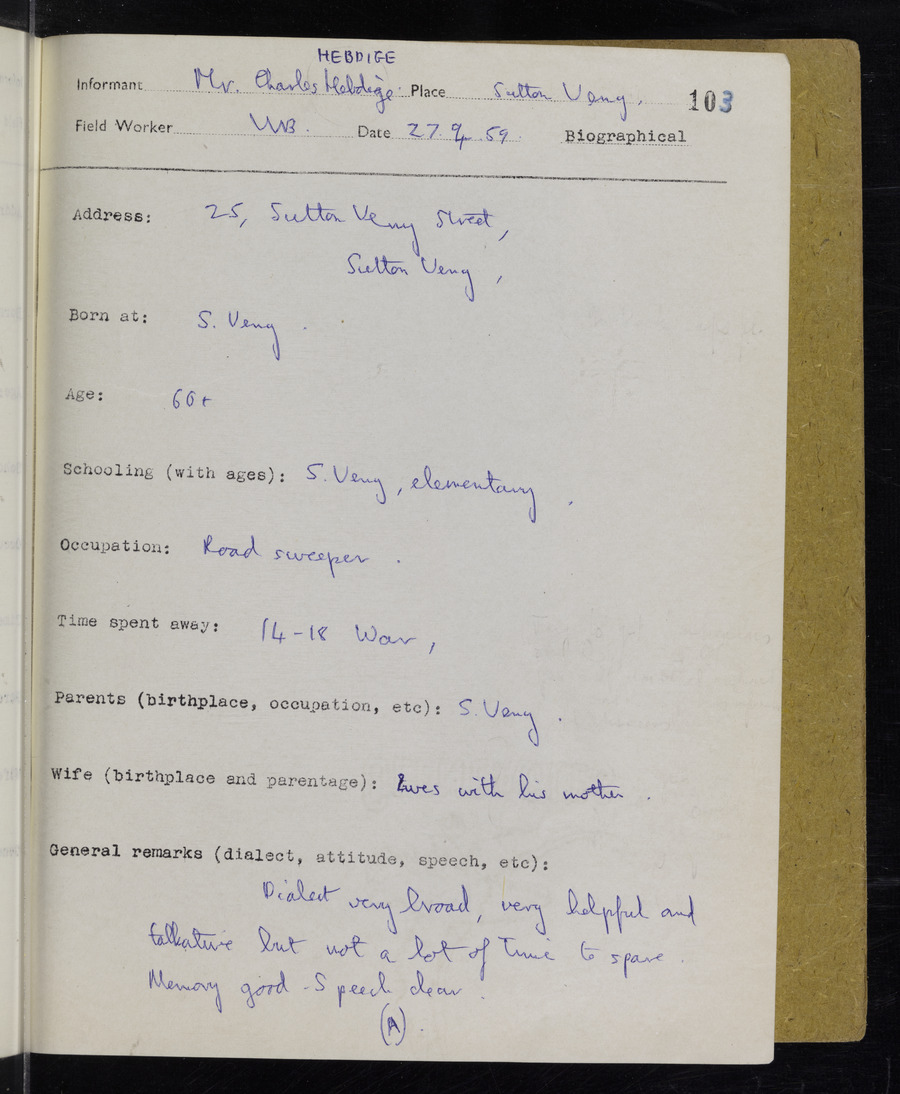 HEBDIGE
Informant Mr. Charles Hebdige Place Sutton Veny. 103
Field Worker Date 27. 9. 59. Biographical
Address: 25, Sutton Veny Street,
Sutton Veny,
Born at: S. Veny.
Age: 60+
Schooling (with ages): S. Veny, elementary.
Occupation: Road sweeper.
Time spent away: 14-18 War,
Parents (birthplace, occupation, etc): S. Veny.
Wife (birthplace and parentage): Lives with his mother.
General remarks (dialect, attitude, speech, etc):
Dialect very broad, very helpful and
talkative but not a lot of time to spare.
Memory good - Speech clear.
(A).